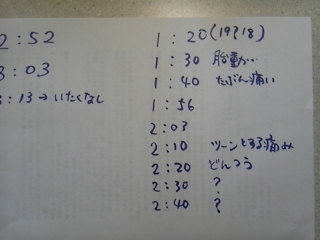 2:52
3:03
3:13→いたくなし
1:20(19?18)
1:30 胎動か…
1:40 たぶん痛い
1:56
2:03
2:10 ツーンとする痛み
2:20 どんつう
2:30 ?
2:40 ?